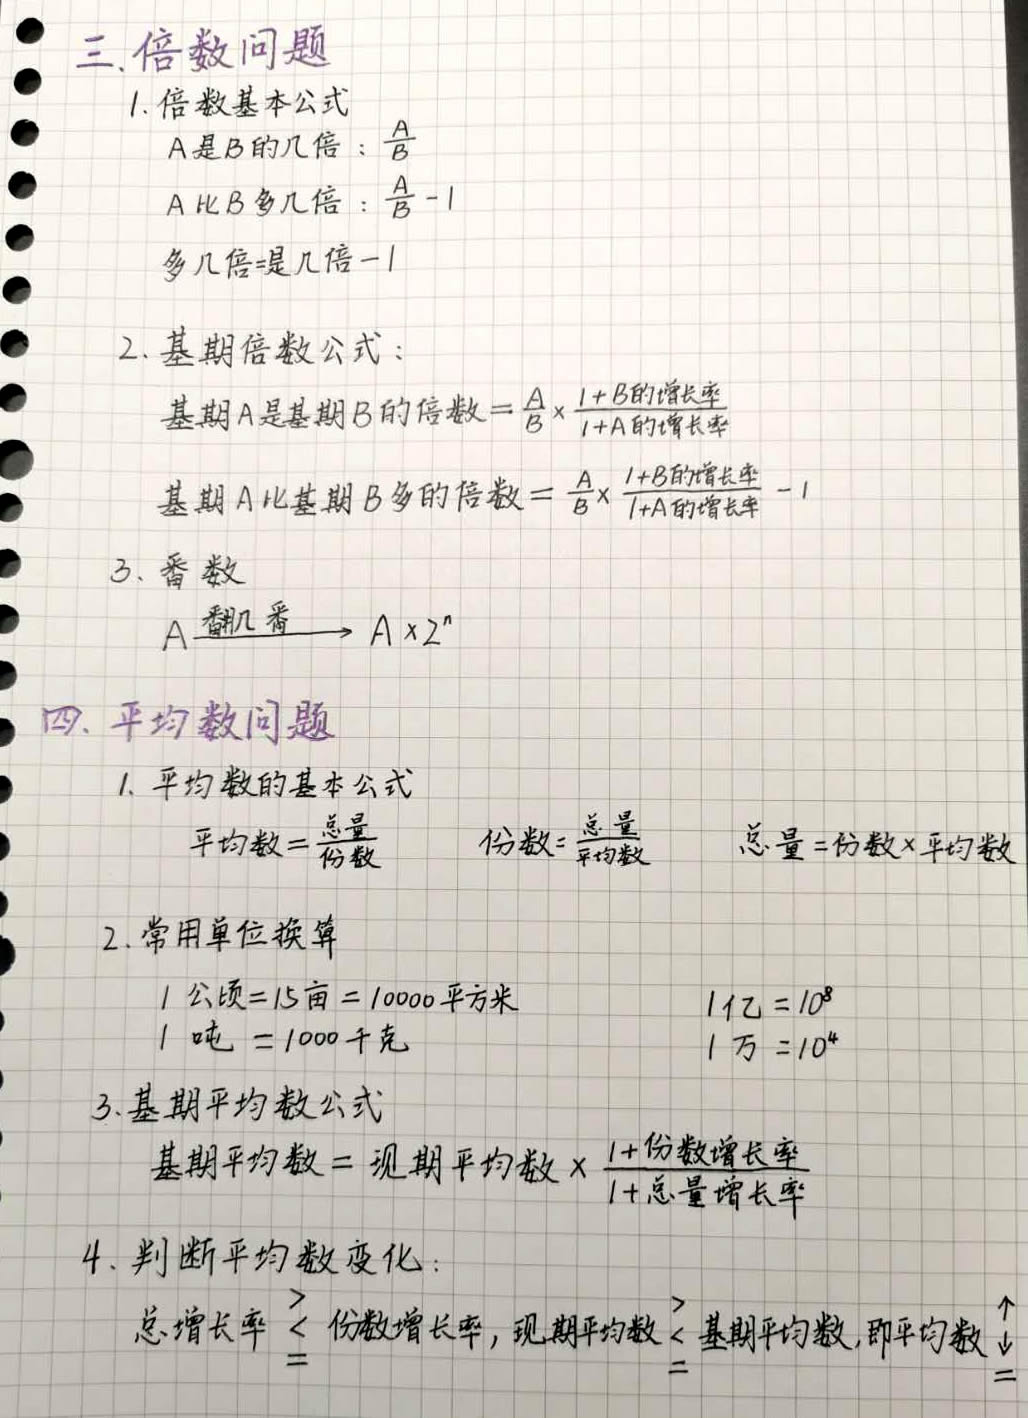 三、倍数问题
1. 倍数基本公式
A是B的几倍：A/B
A比B多几倍：A/B - 1
多几倍=是几倍-1
2. 基期倍数公式：
基期A是基期B的倍数 = A/B × (1+B的增长率)/(1+A的增长率)
基期A比基期B多的倍数 = A/B × (1+B的增长率)/(1+A的增长率) - 1
3、番数
A —翻几番→ A×2ⁿ
四、平均数问题
1. 平均数的基本公式
平均数=总量/份数 份数=总量/平均数 总量=份数×平均数
2. 常用单位换算
1公顷=15亩=10000平方米 1亿=10⁸
1吨=1000千克 1万=10⁴
3.基期平均数公式
基期平均数 = 现期平均数 × (1+份数增长率)/(1+总量增长率)
4、判断平均数变化：
总增长率 > < = 份数增长率，现期平均数 > < = 基期平均数，即平均数 ↑ ↓ =